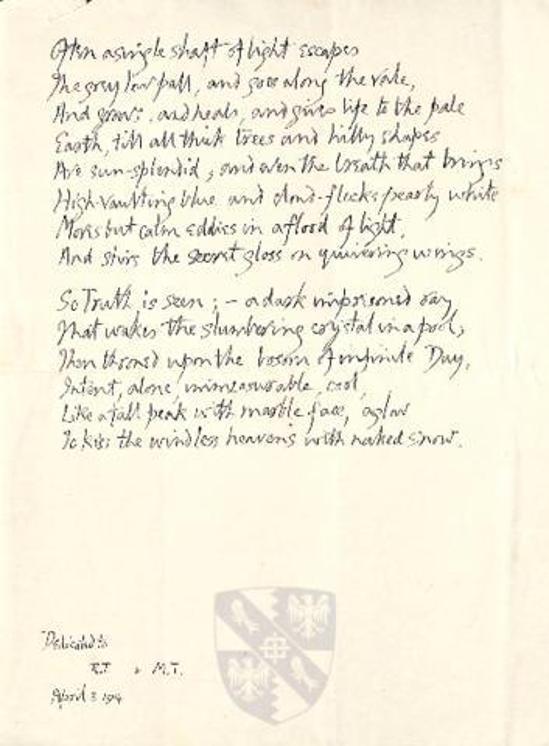 Often a single shaft of light escapes
The grey low pall, and goes along the vale,
And grows, and heals, and gives life to the pale
Earth, till all thick trees and hilly shapes
Are sun-splendid, and even the breath that brings
High-vaulting blue and cloud-flecks pearly white
Moves but calm eddies in a flood of light,
And stirs the secret gloss on quivering wings.
So Truth is seen; - a dark imprisoned ray
That wakes the slumbering crystal in a pool,
Then throned upon the bosom of infinite Day,
Intent, alone, immeasurable, cool
Like a tall peak with marble face, aglow
To kiss the windless heavens with naked snow.
Dedicated to
R.T. & M.T.
April 3